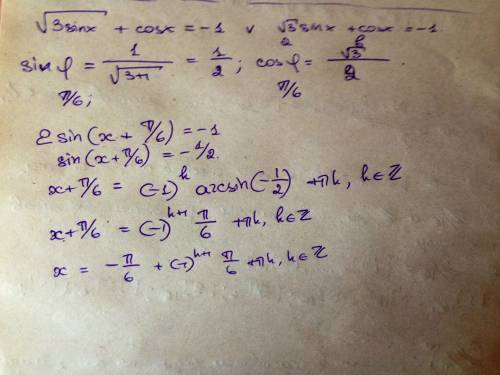 √3sinx + cosx = -1 v √3 sinx + cosx = -1
2 2
sin φ = 1/√3+1 = 1/2; cos φ = √3/2.
π/6; π/6
2 sin(x + π/6) = -1
sin(x+π/6) = -1/2.
x+π/6 = (-1)^k arcsin(-1/2) + πk, k∈Z
x+π/6 = (-1)^k+1 π/6 + πk, k∈Z
x = -π/6 + (-1)^k+1 π/6 + πk, k∈Z